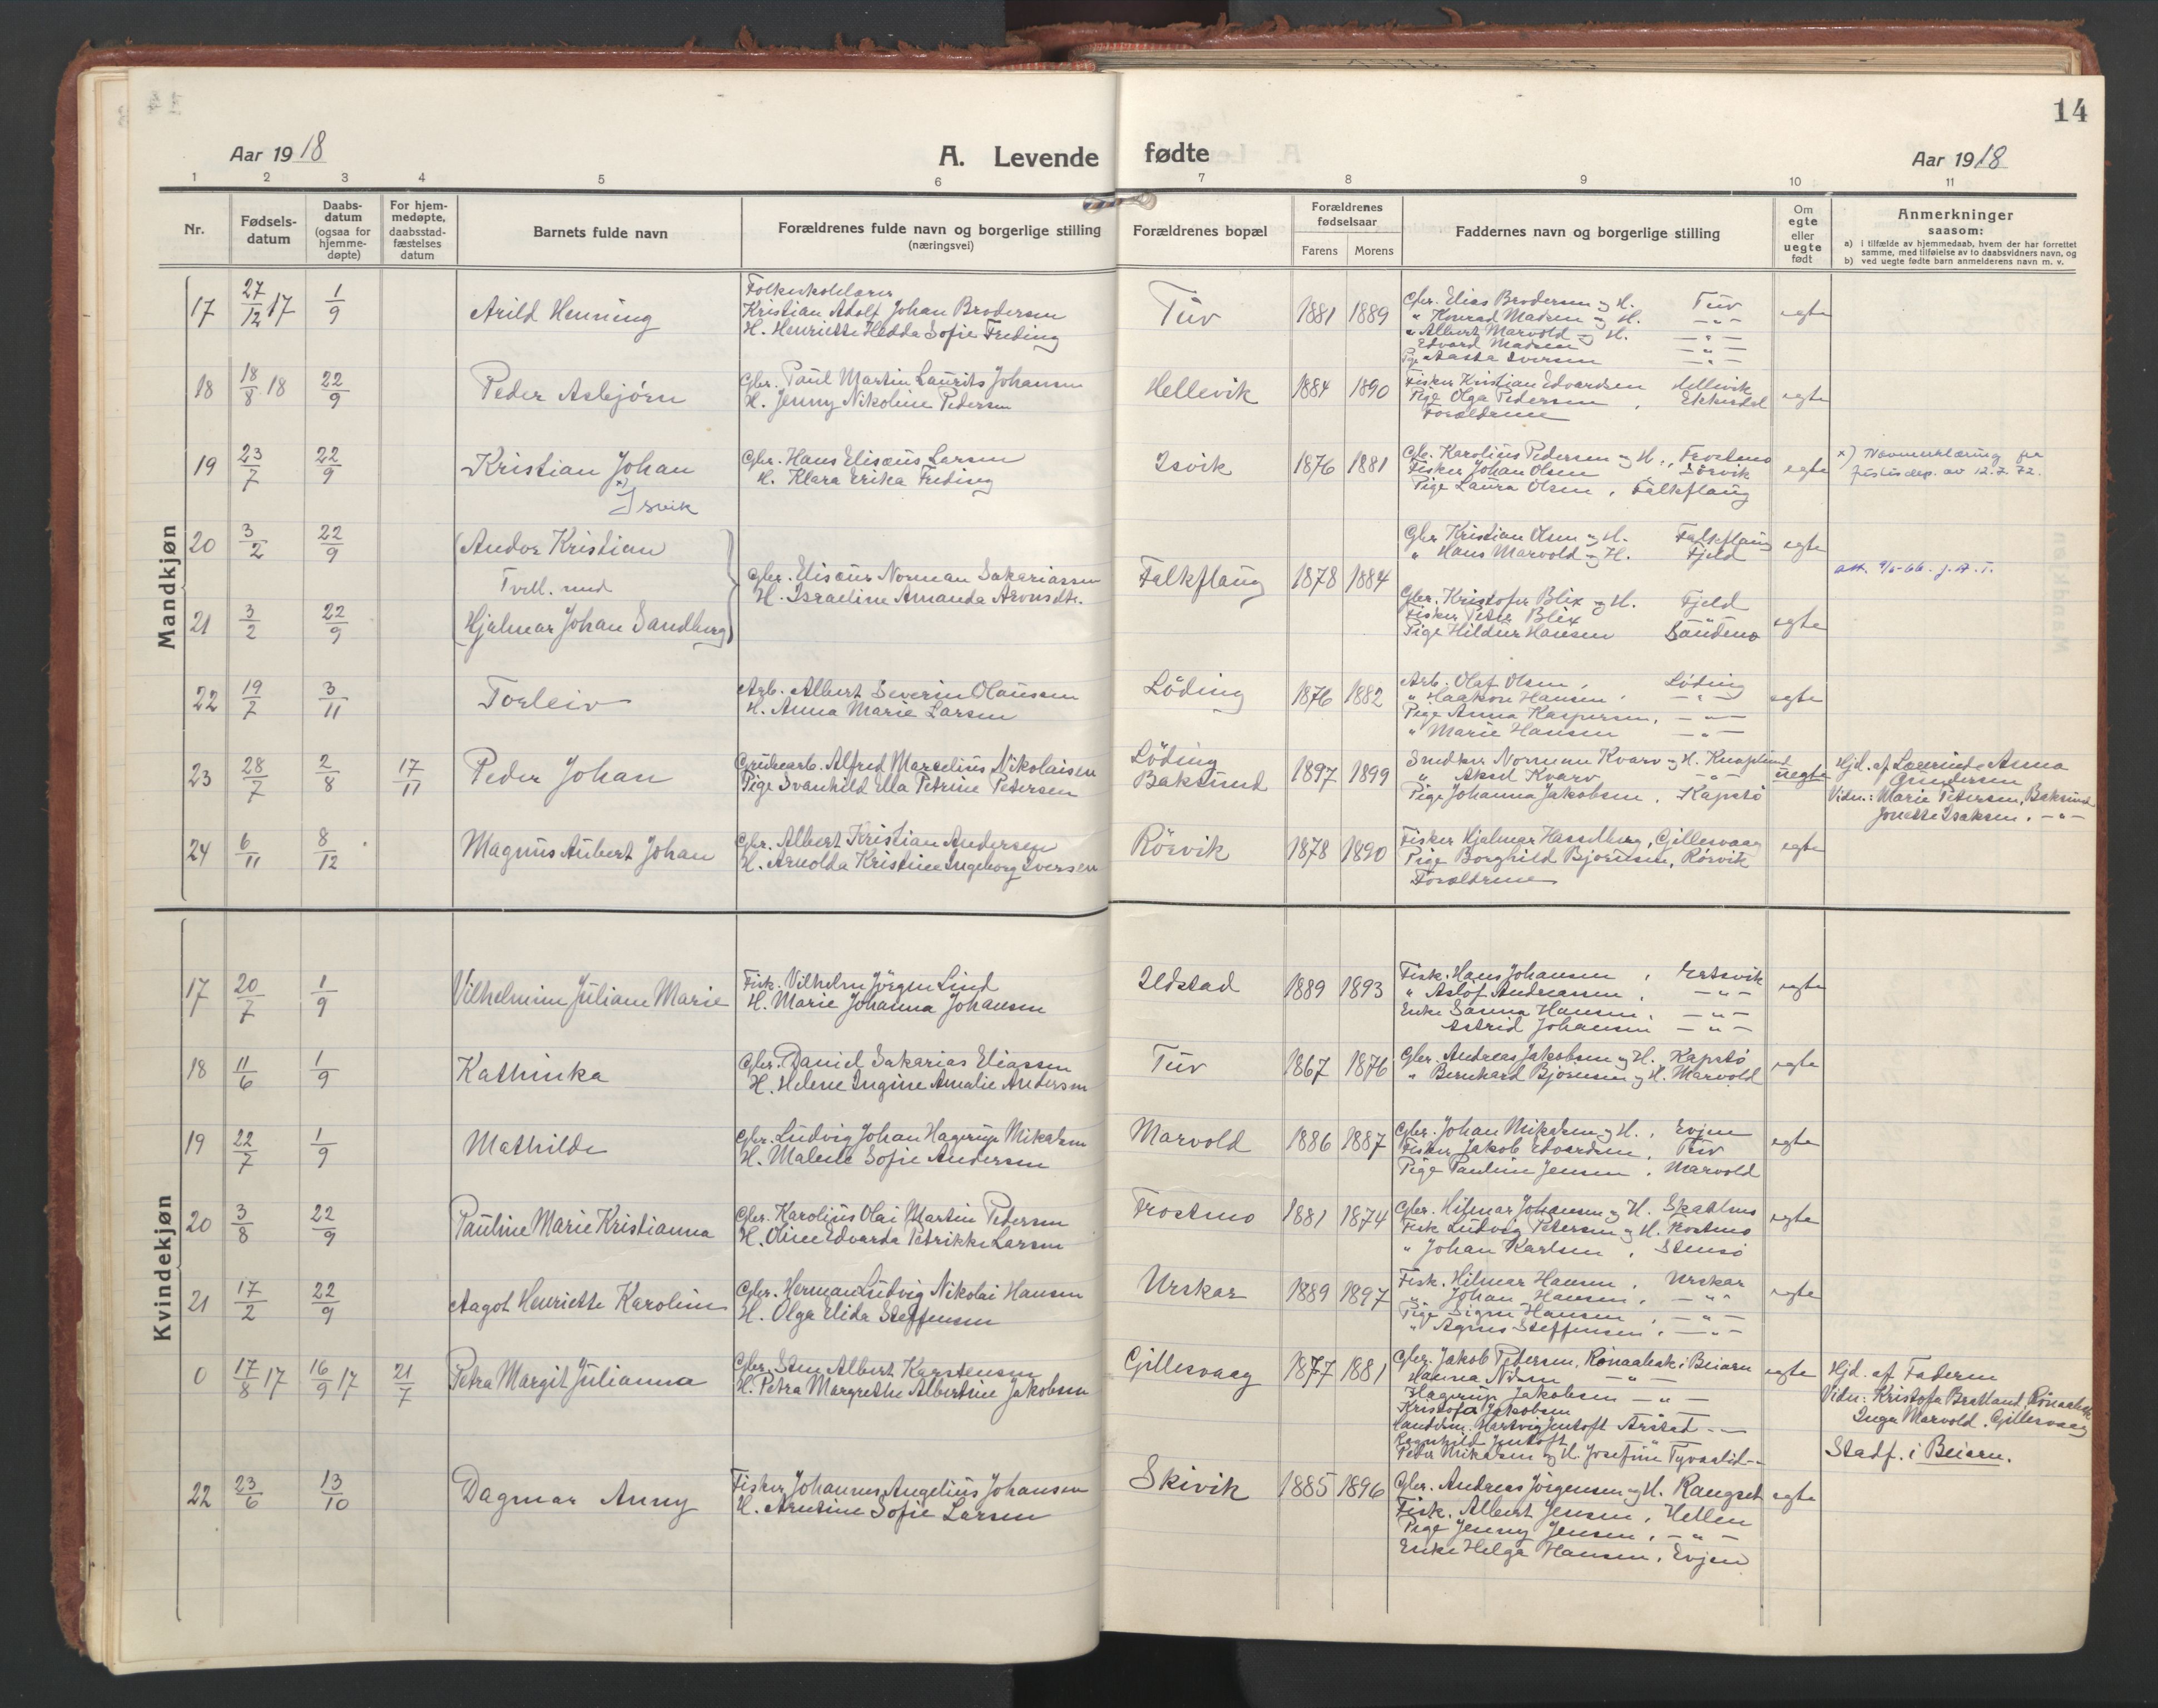 14
Aar 1918
A. Levende fødte
Aar 1918
1 2 3 4 5 6 7 8 9 10 11
Nr.
Fødsels-
datum
Daabs-
datum
(ogsaa for
hjemme-
døpte)
For hjem-
medøpte,
daabsstad-
fæstelses
datum
Barnets fulde navn
Forældrenes fulde navn og borgerlige stilling
(næringsvei)
Forældrenes bopæl
Forældrenes
fødselsaar
Farens Morens
Faddernes navn og borgerlige stilling
Om
egte
eller
uegte
født
Anmerkninger
saasom:
a) i tilfælde av hjemmedaab, hvem der har forrettet
samme, med tilføielse av to daabsvidners navn, og
b) ved uegte fødte barn anmelderens navn m. v.
Mandkjøn
17 27/12 17 1/9 Arild Henning
Kristian Adolf Johan Brodersen
H. Henriette Hedda Sofie Freding
Tuv 1881 1889
Gbr. Elias Brodersen og H. Tuv
" Konrad Madsen og H. — " —
" Albert Marvold og H. — " —
Edvard Madsen — " —
Pige Aasta Iversen — " —
egte
18 18/8 18 22/9 Peder Asbjørn
Gbr. Paul Martin Laurits Johansen
H. Jenny Nikoline Pedersen
Hellevik 1884 1890
Fisker Kristian Edvardsen Hellevik
Pige Olga Pedersen,
Forældrene
egte
19 23/7 22/9 Kristian Johan
x) Isvik
Gbr. Hans Elisæus Larsen
H. Klara Erika Freding
Isvik 1876 1881
Gbr. Karolius Pedersen og H., Frostmo
Fisker Johan Olsen Sørvik
Pige Laura Olsen, Falkflaug
egte
x) Navneerklæring fra
justisdep. av 12.7.72.
20 3/2 22/9 (Andor Kristian
Tvill. med
21 3/2 22/9 (Hjalmar Johan Sandberg)
Gbr. Elisæus Norman Sakariassen
H. Israeline Amanda Aronsdtr.
Falkflaug 1878 1884
Gbr Kristian Olsen og H. Falkflaug
" Hans Marvold og H. Fjeld
egte
Gbr. Kristofer Blix og H. Fjeld
Fisker Peter Blix — " —
Pige Hildur Hansen Sandmo
egte
att. 9/5-66. J.A.T.
22 19/7 3/11 Torleiv
Arb. Albert Severin Olaussen
H. Anna Marie Larsen
Löding 1876 1882
Arb. Olaf Olsen, Löding
" Haakon Hansen, — " —
Pige Anna Kaspersen, — " —
" Marie Hansen — " —
egte
23 28/7 2/8 17/11 Peder Johan
Grubearb. Alfred Marselius Nikolaisen
Pige Svanhild Ella Petrine Petersen
Löding
Baksund 1897 1899
Snedker Norman Kvarv og H. Knaplund
" Aksel Kvarv — " —
Pige Johanna Jakobsen, Kapstö
uegte
Hjd. af Laurinde Anna
Gundersen
Vidn.: Marie Petersen, Baksund
Jonette Isaksen, — " —
24 6/11 8/12 Magnus Aubert Johan
Gbr. Albert Kristian Andersen
H. Arnolda Kristine Ingeborg Iversen
Rörvik 1878 1890
Fisker Hjalmar Hasselberg, Gillesvaag
Pige Borghild Bjørnsen, Rörvik
Forældrene
egte
Kvindekjøn
17 20/7 1/9 Vilhelmine Juliane Marie
Fisk. Vilhelm Jörgen Lind
H. Marie Johanna Johansen
Ildstad 1889 1893
Fisk. Hans Johansen, Ertsvik
" Aslof Andreassen, — " —
Enke Sanna Hansen, — " —
Astrid Johansen — " —
egte
18 11/6 1/9 Kathinka
Gbr. Daniel Sakarias Eliassen
H. Helene Ingine Amalie Andersen
Tuv 1867 1876
Gbr. Andreas Jakobsen og H. Kapstö
" Bernhard Bjørnsen og H. Marvold
egte
19 22/7 1/9 Mathilde
Gbr. Ludvig Johan Hagerup Mikalsen
H. Malene Sofie Andersen
Marvold 1886 1887
Gbr. Johan Mikalsen og H., Evjen
Fisker Jakob Edvardsen, Tuv
Pige Pauline Jensen, Marvold
egte
20 3/8 22/9 Pauline Marie Kristianna
Gbr. Karolius Olai Martin Pedersen
H. Oline Edvarda Petrikke Larsen
Frostmo 1881 1874
Gbr. Hilmar Johansen og H. Skatlmo
Fisk Ludvig Petersen og H. Frostmo
" Johan Karlsen, Stensö
egte
21 17/2 22/9 Aagot Henriette Karoline
Gbr. Herman Ludvig Nikolai Hansen
H. Olga Elida Steffensen
Urskar 1889 1897
Fisk. Hilmar Hansen, Urskar
" Johan Hansen, — " —
Pige Signe Hansen, — " —
" Agnes Steffensen, — " —
egte
0 17/8 17 16/9 17 21/7 Petra Margit Julianna
Gbr. Sten Albert Karstensen
H. Petra Margrethe Albertine Jakobsen
Gillesvaag 1877 1881
Gbr. Jakob Pedersen, Rönaalesk i Beiarn
Hanna — " —
Hagerup Jakobsen — " —
Kristofa Jakobsen —
Handelsm. Hartvig Jentoft Arstad - —
Ragnhild Jentoft "
Peder Mikalsen og H. Josefine
egte
Hjd. af Faderen
Vidn: Kristofa Bratland, Rönaalesk
Inga Marvold, Gillesvaag
Stadf. i Beiarn.
22 23/6 13/10 Dagmar Anny
Fisker Johannes Angelius Johansen
H. Arntine Sofie Larsen
Skivik 1885 1896
Gbr. Andreas Jörgensen og H. Rangset
Fisk. Albert Jensen, Hellen
Pige Jenny Jensen, — " —
Enke Helga Hansen, Evjen
egte